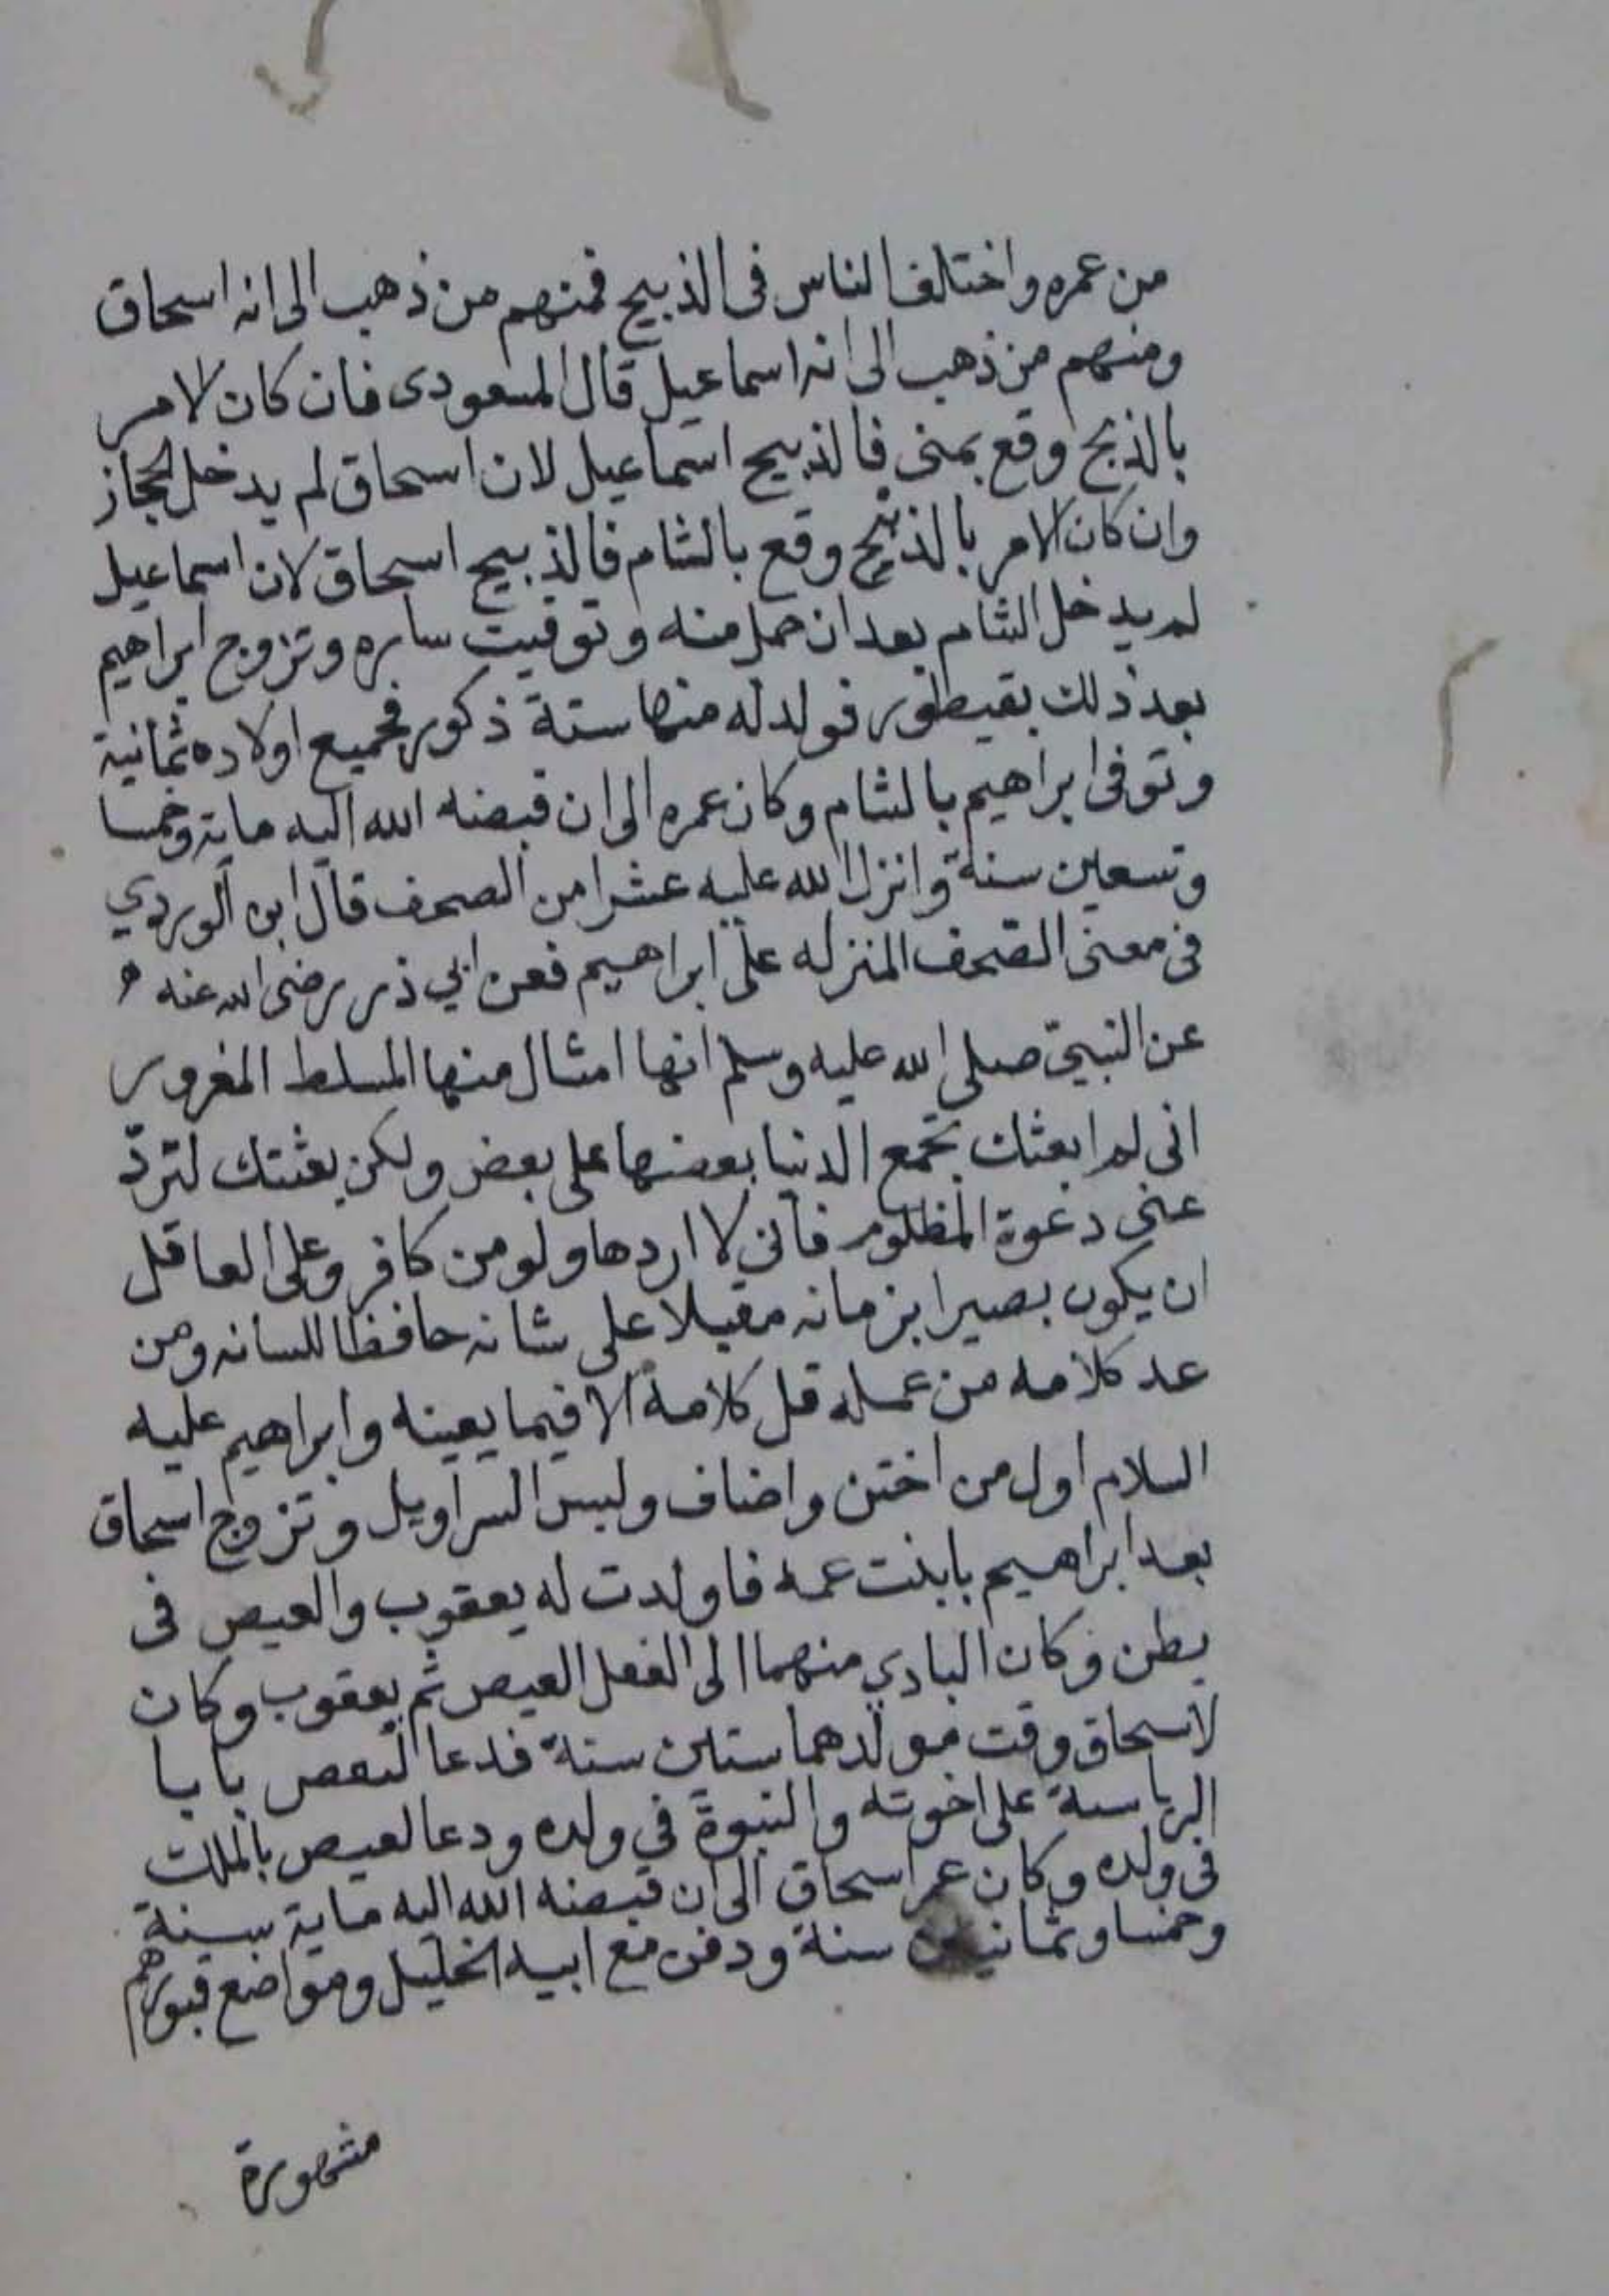 من عمره واختلف الناس فى الذبيح فمنهم من ذهب الى انه اسحاق
ومنهم من ذهب الى انه اسماعيل قال المسعودى فان كان الامر
بالذبح وقع بمنى فالذبيح اسماعيل لان اسحاق لم يدخل الحجاز
وان كان الامر بالذبح وقع بالشام فالذبيح اسحاق لان اسماعيل
لم يدخل الشام بعد ان حمل منه وتوفيت ساره وتزوج ابراهيم
بعد ذلك بقيطور فولد له منها ستة ذكور فجميع اولاده ثمانية
وتوفى ابراهيم بالشام وكان عمره الى ان قبضه الله اليه ماية وخمسا
وتسعين سنة وانزل الله عليه عشرا من الصحف قال ابن الوردي
فى معنى الصحف المنزله على ابراهيم فعن ابي ذر رضى الله عنه
عن النبي صلى الله عليه وسلم انها امثال منها المسلط المغرور
انى لم ابعثك تجمع الدنيا بعضها على بعض ولكن بعثتك لتردّ
عنى دعوة المظلوم فانى لا اردها ولو من كافر وعلى العاقل
ان يكون بصيرا بزمانه مقبلا على شانه حافظا للسانه ومن
عد كلامه من عمله قل كلامه الا فيما يعينه وابراهيم عليه
السلام اول من اختتن واضاف ولبس السراويل وتزوج اسحاق
بعد ابراهيم بابنت عمه فاولدت له يعقوب والعيص فى
بطن وكان البادي منهما الى الفصل العيص ثم يعقوب وكان
لاسحاق وقت مولدهما ستين سنة فدعا
الرياسة على اخوته والنبوة في ولده ودعا لعيص بالملك
فى ولده وكان عمر اسحاق الى ان قبضه الله اليه ماية سنة
وخمسا وثمانين سنة ودفن مع ابيه الخليل ومواضع قبورهم
مشهورة